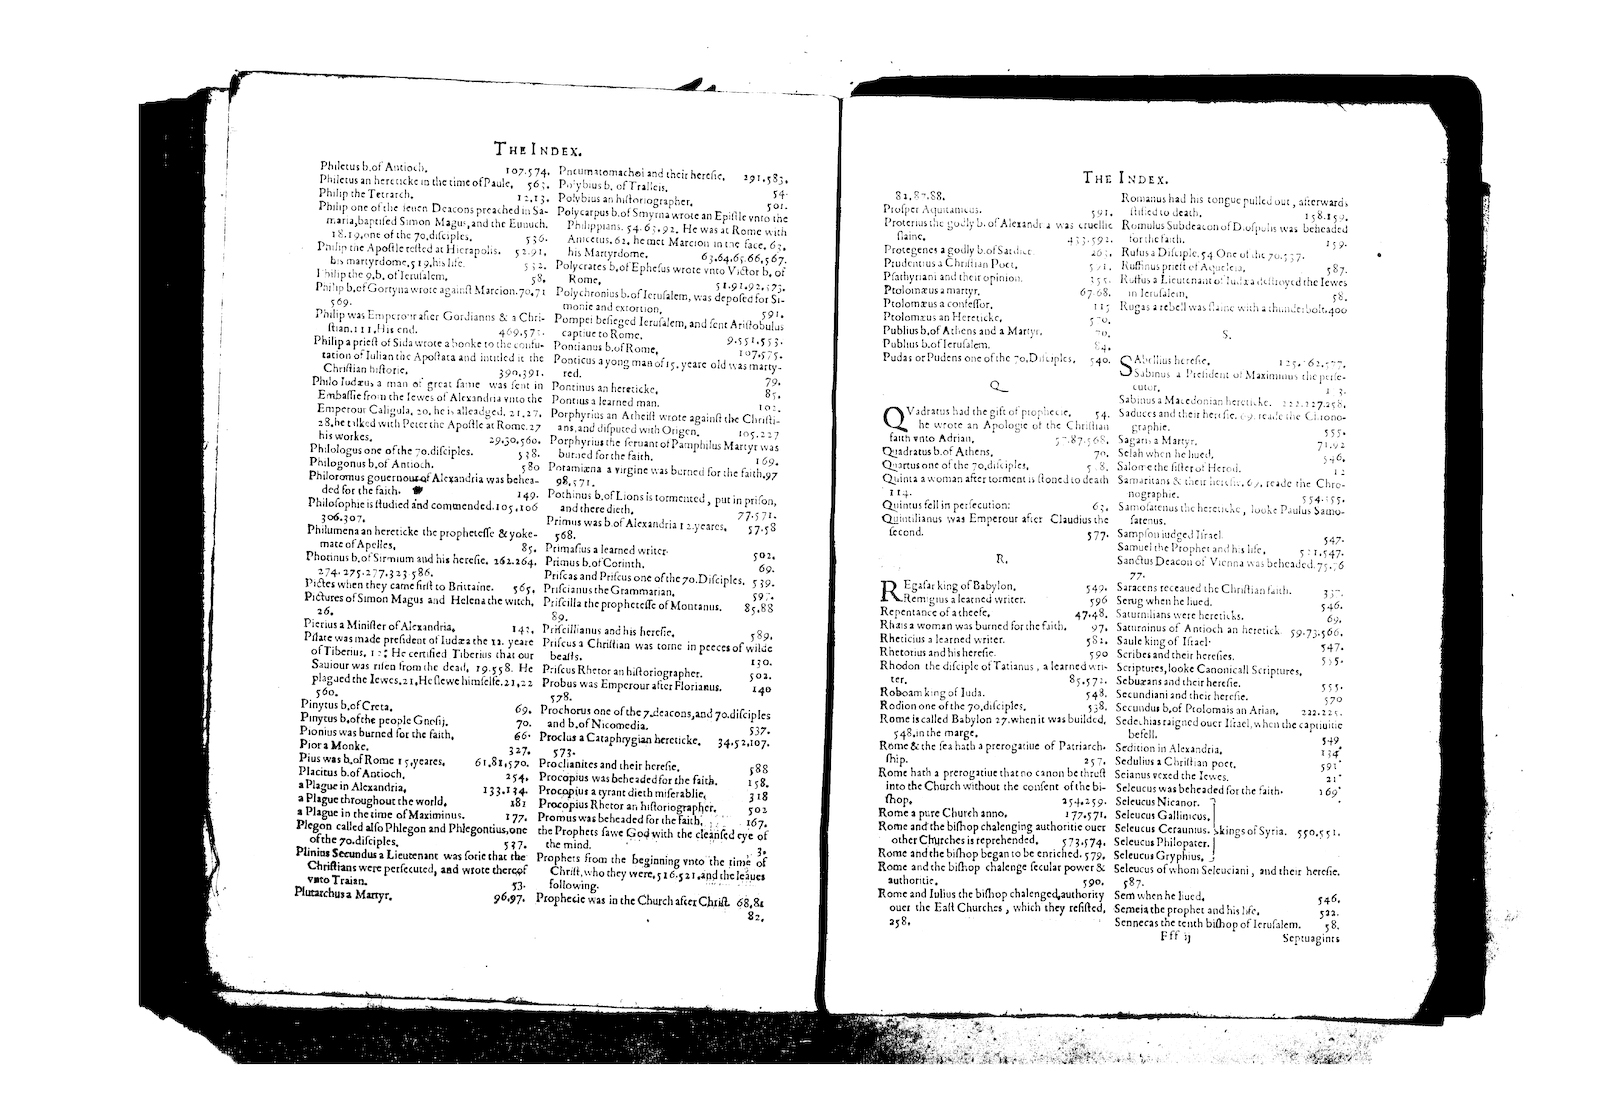 THE INDEX.
Philetus b.of Antioch, 107.574.
Philetus an hereticke in the time of Paule, 563.
Philip the Tetrarch, 12.13.
Philip one of the ſeuen Deacons preached in Sa-
maria,baptiſed Simon Magus,and the Eunuch.
18.19,one of the 70,diſciples, 536.
Philip the Apoſtle reſted at Hierapolis. 52.91,
his martyrdome,519,his life. 532.
Philip the 9,b, of Ieruſalem, 58.
Philip b,of Gortyna wrote againſt Marcion.70,71
569.
Philip was Emperour after Gordianus & a Chri-
ſtian.111,His end. 469,57
Philip a prieſt of Sida wrote a booke to the confu-
tation of Iulian the Apoſtata and intitled it the
Chriſtian hiſtorie, 390,391.
Philo Iudæus a man of great fame was ſent in
Embaſſie from the Iewes of Alexandria vnto the
Emperour Caligula, 20, he is alleadged. 21,27,
28,he talked with Peter the Apoſtle at Rome.27
his workes, 29,30,560.
Philologus one of the 70.diſciples. 538.
Philogonus b,of Antioch. 580
Philoromus gouernour of Alexandria was behea-
ded for the faith. 149.
Philoſophie is ſtudied and commended.105,106
306.307,
Philumena an hereticke the propheteſſe & yoke-
mate of Apelles, 85,
Photinus b,of Sirmium and his hereſie, 262.264,
274.275.277.323.586.
Pictes when they came firſt to Brittaine. 565,
Pictures of Simon Magus and Helena the witch,
26.
Pierius a Miniſter of Alexandria, 142,
Pilate was made preſident of Iudæa the 12. yeare
of Tiberius, He certified Tiberius that our
Sauiour was riſen from the dead, 19.558. He
plagued the Iewes,21,He ſlewe himſelfe.21,22
560.
Pinytus b,of Creta, 69,
Pinytus b,of the people Gnoſij. 70.
Pionius was burned for the faith, 66.
Pior a Monke. 327.
Pius was b,of Rome 15,yeares, 61,81,570.
Placitus b.of Antioch, 254,
a Plague in Alexandria, 133.134.
a Plague throughout the world, 181
a Plague in the time of Maximinus. 177.
Plegon called alſo Phlegon and Phlegontius,one
of the 70.diſciples. 537.
Plinius Secundus a Lieutenant was ſorie that the
Chriſtians were perſecuted, and wrote thereof
vnto Traian. 53.
Plutarchus a Martyr, 96,97,
Pneumatomachoi and their hereſie, 291,583,
Polybius b, of Tralleis. 54.
Polybius an hiſtoriographer, 501.
Polycarpus b.of Smyrna wrote an Epiſtle vnto the
Philippians. 54.63,92. He was at Rome with
Anicetus,62, he met Marcion in the face, 63,
his Martyrdome, 63,64,65.66,567.
Polycrates b,of Epheſus wrote vnto Victor b, of
Rome, 51.91.92,573.
Polychronius b.of Ieruſalem, was depoſed for Si-
monie and extortion, 591.
Pompei beſieged Ieruſalem, and ſent Ariſtobulus
captiue to Rome, 9.551.553.
Pontianus b.of Rome, 107,575.
Ponticus a yong man of 15. yeare old was marty-
red. 79.
Pontinus an hereticke, 85,
Pontius a learned man. 102.
Porphyrius an Atheiſt wrote againſt the Chriſti-
ans,and diſputed with Origen, 105.227
Porphyrius the ſeruant of Pamphilus Martyr was
burned for the faith. 169.
Potamiæna a virgine was burned for the faith,97
98,571.
Pothinus b,of Lions is tormented , put in priſon,
and there dieth, 77.571.
Primus was b.of Alexandria 12.yeares, 57.58
568.
Primaſius a learned writer. 502,
Primus b.of Corinth, 69.
Priſcas and Priſcus one of the 70.Diſciples, 539.
Priſcianus the Grammarian, 597.
Priſcilla the propheteſſe of Montanus. 85,88
89.
Priſcillianus and his hereſie, 589.
Priſcus a Chriſtian was torne in peeces of wilde
beaſts. 130.
Priſcus Rhetor an hiſtoriographer. 502.
Probus was Emperour after Florianus. 140
578.
Prochorus one of the 7.deacons,and 70.diſciples
and b,of Nicomedia. 537.
Proclus a Cataphrygian hereticke, 34.52,107.
573.
Proclianites and their hereſie, 588
Procopius was beheaded for the faith. 158.
Procopius a tyrant dieth miſerablie, 318
Procopius Rhetor an hiſtoriographer, 502
Promus was beheaded for the faith, 167.
the Prophets ſawe God with the cleanſed eye of
the mind. 3.
Prophets from the beginning vnto the time of
Chriſt,who they were,516.521,and the leaues
following.
Prophecie was in the Church after Chriſt. 68,81
82,
THE INDEX.
81,87.88.
Proſper Aquitanicus. 591.
Proterius the godly b. of Alexandria was cruellie
ſlaine. 433.592.
Protegenes a godly b.of Sardice
Prudentius a Chriſtian Poet,
Pſathyriani and their opinion.
Ptolomæus a martyr, 67.68.
Ptolomæus a confeſſor, 115
Ptolomæus an Hereticke, 570.
Publius b,of Athens and a Martyr, 70.
Publius b.of Ieruſalem. 84.
Pudas or Pudens one of the 70,Diſciples, 540.
Q
QVadratus had the gift of prophecie, 54.
he wrote an Apologie of the Chriſtian
faith vnto Adrian, 57.87.568.
Quadratus b.of Athens, 70,
Quartus one of the 70,diſciples, 538.
Quinta a woman after torment is ſtoned to death
114.
Quintus fell in perſecution: 63,
Quintilianus was Emperour after Claudius the
ſecond. 577.
R.
REgaſar king of Babylon, 549.
Remigius a learned writer. 596
Repentance of a theefe, 47.48,
Rhais a woman was burned for the faith, 97,
Rheticius a learned writer. 582,
Rhetorius and his hereſie. 590
Rhodon the diſciple of Tatianus , a learned wri-
ter. 85,572.
Roboam king of Iuda. 548,
Rodion one of the 70,diſciples, 538,
Rome is called Babylon 27.when it was builded,
548,in the marge,
Rome & the ſea hath a prerogatiue of Patriarch-
ſhip. 257,
Rome hath a prerogatiue that no canon be thruſt
into the Church without the conſent of the bi-
ſhop, 254.259.
Rome a pure Church anno, 177,571,
Rome and the biſhop chalenging authoritie ouer
other Churches is reprehended, 573,574,
Rome and the biſhop began to be enriched. 579,
Rome and the biſhop chalenge ſecular power &
authoritie, 590,
Rome and Iulius the biſhop chalenged,authority
ouer the Eaſt Churches , which they reſiſted,
258,
Romanus had his tongue pulled out , afterwards
ſtifled to death, 158.159.
Romulus Subdeacon of Dioſpolis was beheaded
for the faith. 159.
Rufus a Diſciple.54 One of the 70.537.
Ruffinus prieſt of Aquileia, 587.
Ruffus a Lieutenant of Iudæa deſtroyed the Iewes
in Ieruſalem, 58.
Rugas a rebell was ſlaine with a thunderbolt.400
S.
SAbellius hereſie,
Sabinus a Preſident of Maximinus the perſe-
cutor,
Sabinus a Macedonian hereticke. 222.227.258,
Saduces and their hereſie. 69. reade the Chrono-
graphie. 555.
Sagaris a Martyr. 71.92
Selah when he liued, 546,
Salome the ſiſter of Herod. 12
Samaritans & their hereſie, 69, reade the Chro-
nographie. 554.555.
Samoſatenus the hereticke , looke Paulus Samo-
ſatenus,
Sampſon iudged Iſrael. 547.
Samuel the Prophet and his life, 521.547.
Sanctus Deacon of Vienna was beheaded.75,76
77.
Saracens receaued the Chriſtian faith.
Serug when he liued. 546,
Saturnilians were hereticks. 69,
Saturninus of Antioch an heretick 59.73,566,
Saule king of Iſrael. 547.
Scribes and their hereſies. 555.
Scriptures,looke Canonicall Scriptures,
Sebuæans and their hereſie. 555.
Secundiani and their hereſie. 570
Secundus b,of Ptolomais an Arian, 222.225.
Sedechias raigned ouer Iſrael,when the captiuitie
befell. 549
Sedition in Alexandria, 134
Sedulius a Chriſtian poet, 591
Seianus vexed the Iewes. 21
Seleucus was beheaded for the faith. 169
Seleucus Nicanor.
Seleucus Gallinicus,
Seleucus Ceraunius. kings of Syria. 550,551.
Seleucus Philopater.
Seleucus Gryphius,
Seleucus of whom Seleuciani , and their hereſie.
587.
Sem when he liued, 546,
Semeia the prophet and his life, 522.
Sennecas the tenth biſhop of Ieruſalem. 58.
Fff ij Septuagints